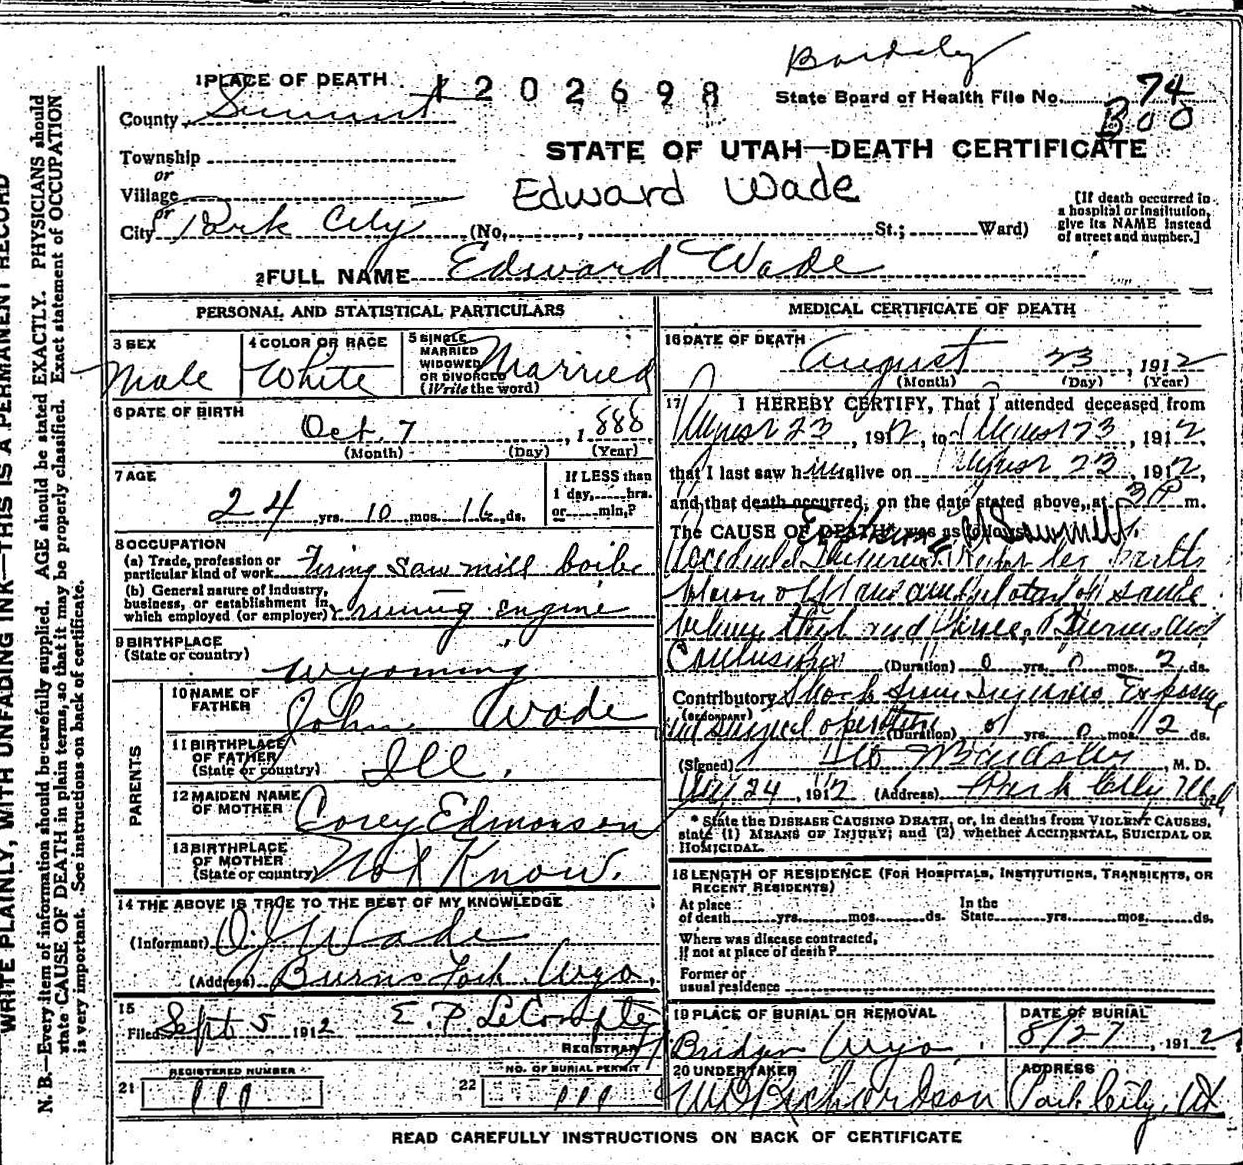 Bardsley
1 PLACE OF DEATH 1202698
State Board of Health File No. 74
B 00
County Summit
STATE OF UTAH—DEATH CERTIFICATE
Township
or
Village
Edward Wade
or
City Park City (No. , St.; Ward)
[If death occurred in a hospital or institution, give its NAME instead of street and number.]
2 FULL NAME Edward Wade
PERSONAL AND STATISTICAL PARTICULARS
3 SEX
Male
4 COLOR OR RACE
White
5 SINGLE
MARRIED
WIDOWED
OR DIVORCED
(Write the word)
Married
6 DATE OF BIRTH
Oct. 7, 1888
(Month) (Day) (Year)
7 AGE
24 yrs. 10 mos. 16 ds.
If LESS than
1 day, hrs.
or min.?
8 OCCUPATION
(a) Trade, profession or
particular kind of work Firing saw mill boiler
(b) General nature of industry,
business, or establishment in
which employed (or employer) & running engine
9 BIRTHPLACE
(State or country)
Wyoming
PARENTS
10 NAME OF
FATHER
John Wade
11 BIRTHPLACE
OF FATHER
(State or country)
Ill.
12 MAIDEN NAME
OF MOTHER
Corey Edmonson
13 BIRTHPLACE
OF MOTHER
(State or country)
Not Know.
14 THE ABOVE IS TRUE TO THE BEST OF MY KNOWLEDGE
(Informant) O J Wade
(Address) Burns Fork Wyo.
15
Filed Sept 5 1912 E. P. LeCompte
REGISTRAR
21 REGISTERED NUMBER
111
22 NO. OF BURIAL PERMIT
111
MEDICAL CERTIFICATE OF DEATH
16 DATE OF DEATH
August 23, 1912
(Month) (Day) (Year)
17 I HEREBY CERTIFY, That I attended deceased from
August 23, 1912, to August 23, 1912,
that I last saw him alive on August 23, 1912,
and that death occurred, on the date stated above, at 3 P m.
The CAUSE OF DEATH was as follows:
Sawmill.
Accidental
and
Contusions (Duration) 0 yrs. 0 mos. ds.
Contributory Shock from Injuries Exposure
(SECONDARY)
surgical operation (Duration) 0 yrs. 0 mos. ds.
(Signed) , M. D.
Aug 24, 1912 (Address) Park City Utah
* State the DISEASE CAUSING DEATH, or, in deaths from VIOLENT CAUSES,
state (1) MEANS OF INJURY; and (2) whether ACCIDENTAL, SUICIDAL OR
HOMICIDAL.
18 LENGTH OF RESIDENCE (FOR HOSPITALS, INSTITUTIONS, TRANSIENTS, OR
RECENT RESIDENTS)
At place In the
of death yrs. mos. ds. State yrs. mos. ds.
Where was disease contracted,
if not at place of death?
Former or
usual residence
19 PLACE OF BURIAL OR REMOVAL
Bridger Wyo.
DATE OF BURIAL
8/27, 1912
20 UNDERTAKER
Richardson
ADDRESS
Park City, Ut.
READ CAREFULLY INSTRUCTIONS ON BACK OF CERTIFICATE
WRITE PLAINLY, WITH UNFADING INK—THIS IS A PERMANENT RECORD
N. B.—Every item of information should be carefully supplied. AGE should be stated EXACTLY. PHYSICIANS should
state CAUSE OF DEATH in plain terms, so that it may be properly classified. Exact statement of OCCUPATION
is very important. See instructions on back of certificate.